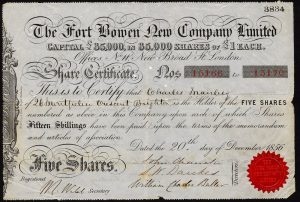 3834
The Fort Bowen New Company Limited
CAPITAL £35,000, IN 35,000 SHARES OF £1 EACH.
Offices New Broad St. London
Share Certificate. Nos 15166 to 15170
This is to Certify that Charles
of Crescent Brighton is the Holder of the FIVE SHARES
numbered as above in this Company upon each of which Shares
Fifteen Shillings have been paid upon the terms of the memorandum
and articles of association.
Dated the 20th day of December 1886
Five Shares.
Registered
Secretary